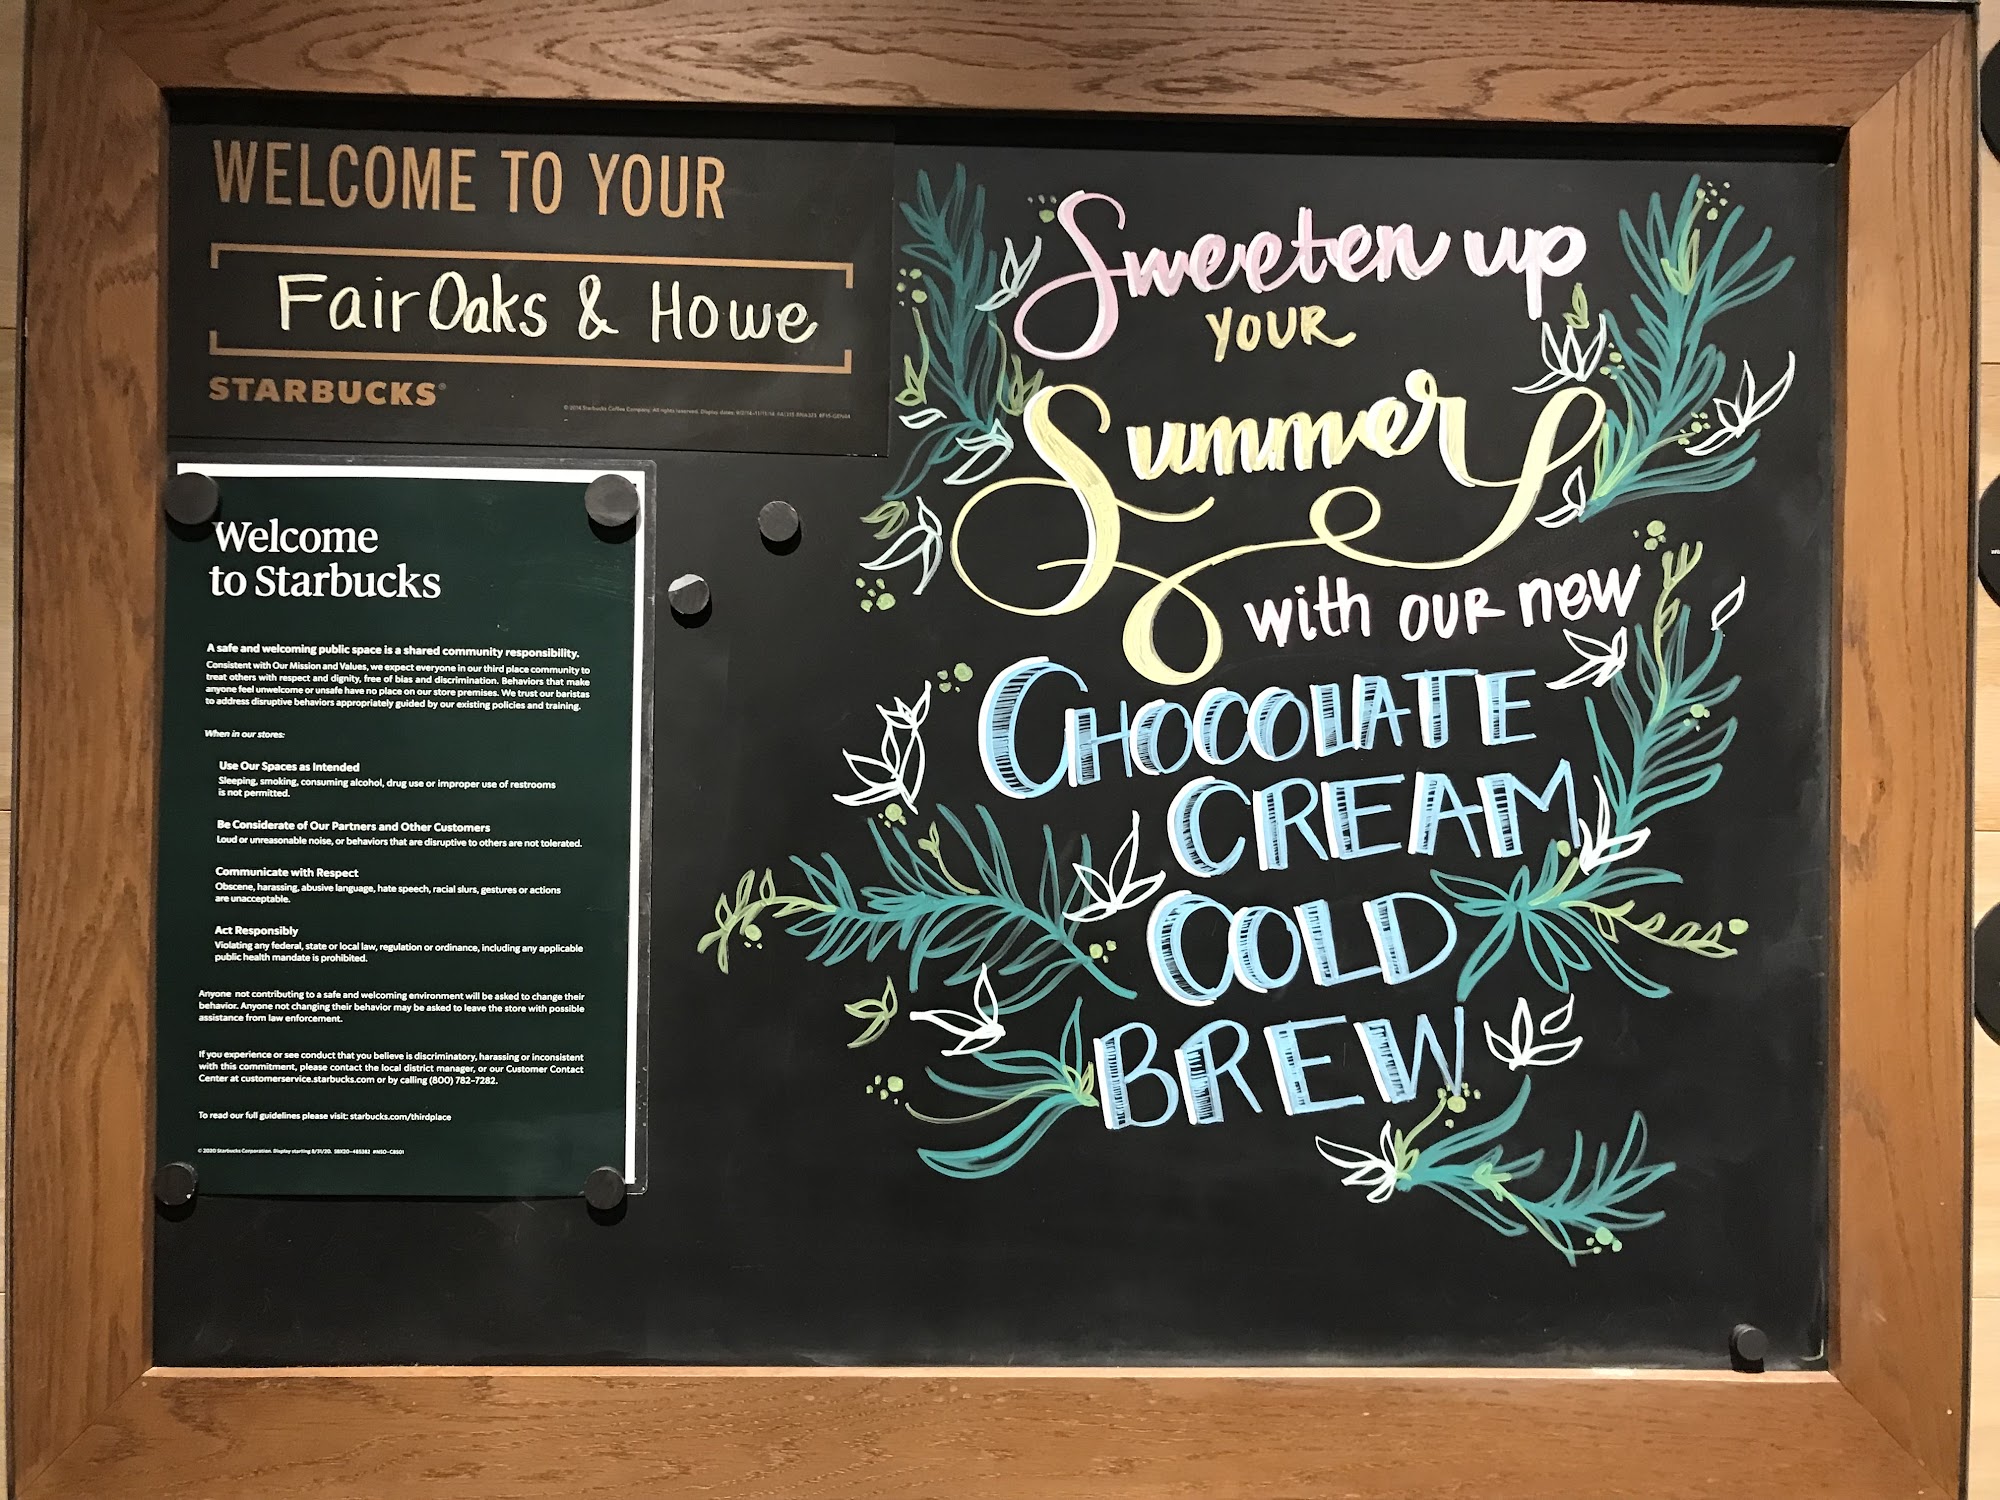 WELCOME TO YOUR
Fair Oaks & Howe
STARBUCKS®
Welcome
to Starbucks
A safe and welcoming public space is a shared community responsibility.
Consistent with Our Mission and Values, we expect everyone in our third place community to
treat others with respect and dignity, free of bias and discrimination. Behaviors that make
anyone feel unwelcome or unsafe have no place on our store premises. We trust our baristas
to address disruptive behaviors appropriately guided by our existing policies and training.
When in our stores:
Use Our Spaces as Intended
Sleeping, smoking, consuming alcohol, drug use or improper use of restrooms
is not permitted.
Be Considerate of Our Partners and Other Customers
Loud or unreasonable noise, or behaviors that are disruptive to others are not tolerated.
Communicate with Respect
Obscene, harassing, abusive language, hate speech, racial slurs, gestures or actions
are unacceptable.
Act Responsibly
Violating any federal, state or local law, regulation or ordinance, including any applicable
public health mandate is prohibited.
Anyone not contributing to a safe and welcoming environment will be asked to change their
behavior. Anyone not changing their behavior may be asked to leave the store with possible
assistance from law enforcement.
If you experience or see conduct that you believe is discriminatory, harassing or inconsistent
with this commitment, please contact the local district manager, or our Customer Contact
Center at customerservice.starbucks.com or by calling (800) 782-7282.
To read our full guidelines please visit: starbucks.com/thirdplace
© 2020 Starbucks Corporation. Display starting 8/31/20. SBX20-485382 #NSO-CBS01
Sweeten up
YOUR
Summer
with OUR new
CHOCOLATE
CREAM
COLD
BREW